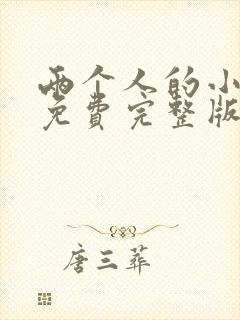 两个人的小
免费完整版
唐三葬